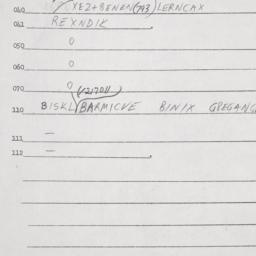 040 XEZ+BENEN(743)LERNCAX
041 REXNDIK
050 0
060 0
070 0
(1217011)
110 BISKL/BARMICVE BINIX GPEGANG
111 —
112 —